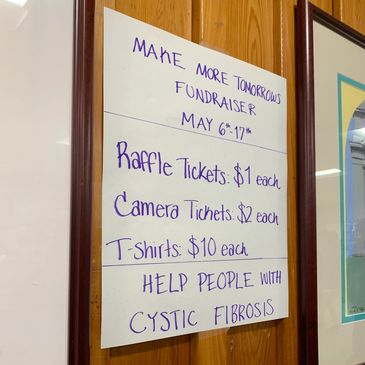 MAKE MORE TOMORROWS
FUNDRAISER
MAY 6th-17th
Raffle Tickets: $1 each
Camera Tickets: $2 each
T-Shirts: $10 each
HELP PEOPLE WITH
CYSTIC FIBROSIS